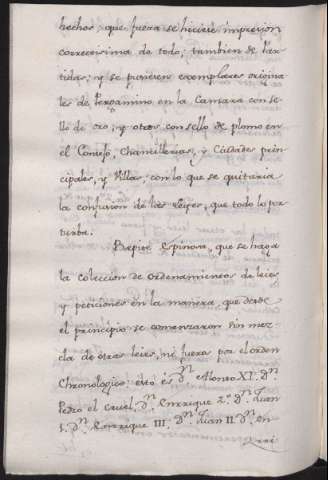 hechos, que fuera se hiciese impresion
correctisima de todo, tambien de Par-
tidas; y se pusiesen exemplares origina-
les de Pergamino en la Camara con se-
llo de oro, y otros con sello de plomo en
el Consejo, Chancillerias, y Ciudades prin-
cipales, y Villas, con lo que se quitaria
la confusion de las Leyes, que todo lo per-
turba.
Repite Espinosa, que se haga
la coleccion de ordenamientos de leies
y peticiones en la manera, que desde
el principio se comenzaron sin mez-
cla de otras leies, ni fueros por el orden
Chronologico: esto és Dn Alonso XI. Dn
Pedro el cruel, Dn Enrrique 2.º Dn Juan
1. Dn Enrrique III. Dn Juan II. Dn En-